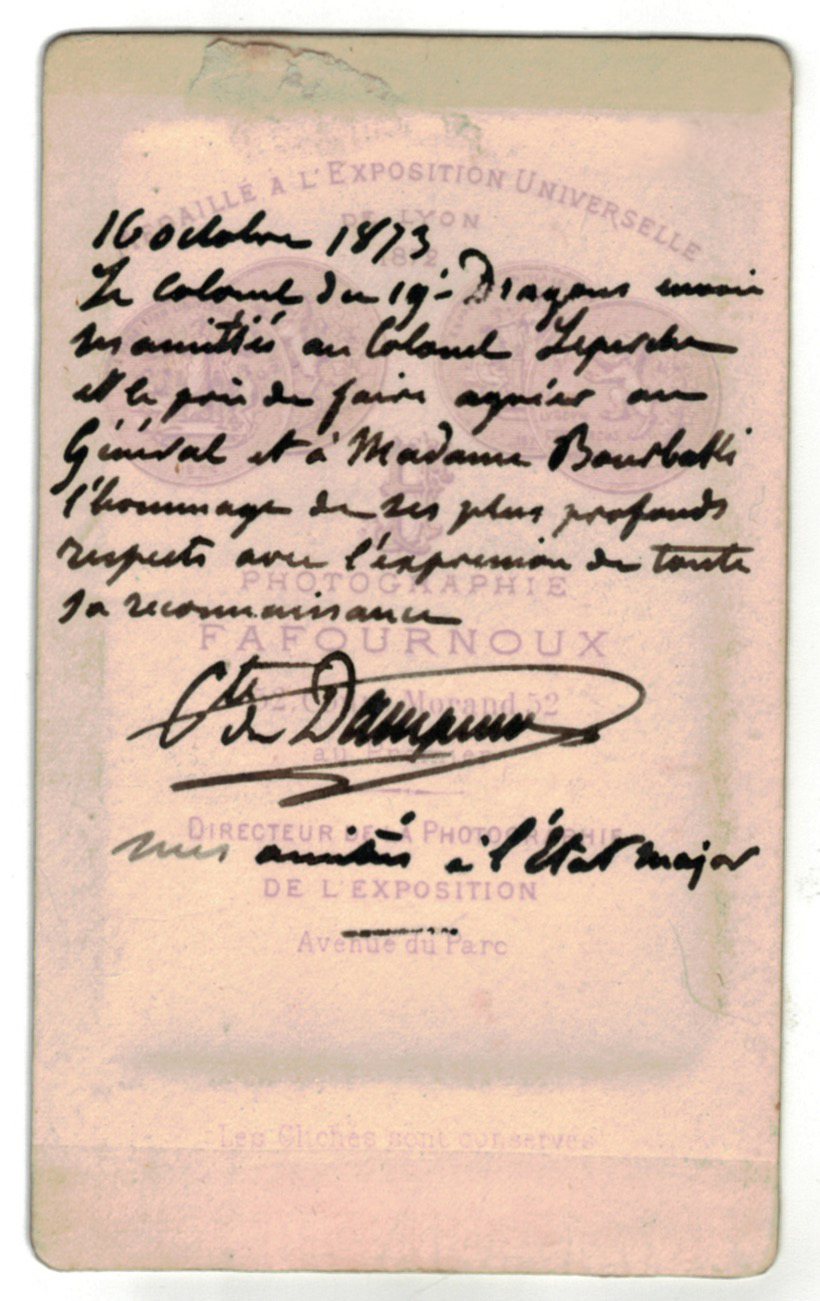 MÉDAILLÉ A L'EXPOSITION UNIVERSELLE
DE LYON
1872
16 octobre 1873
Le Colonel du 19e Dragons envoie
ses amitiés au Colonel Leperche
et le prie de faire agréer au
Général et à Madame Bourbaki
l'hommage de ses plus profonds
respects avec l'expression de toute
sa reconnaissance
PHOTOGRAPHIE
FAFOURNOUX
52, Morand, 52
Cte de Dampierre
au
DIRECTEUR DE LA PHOTOGRAPHIE
mes amitiés à l'État major
DE L'EXPOSITION
Avenue du Parc
Les Clichés sont conservés